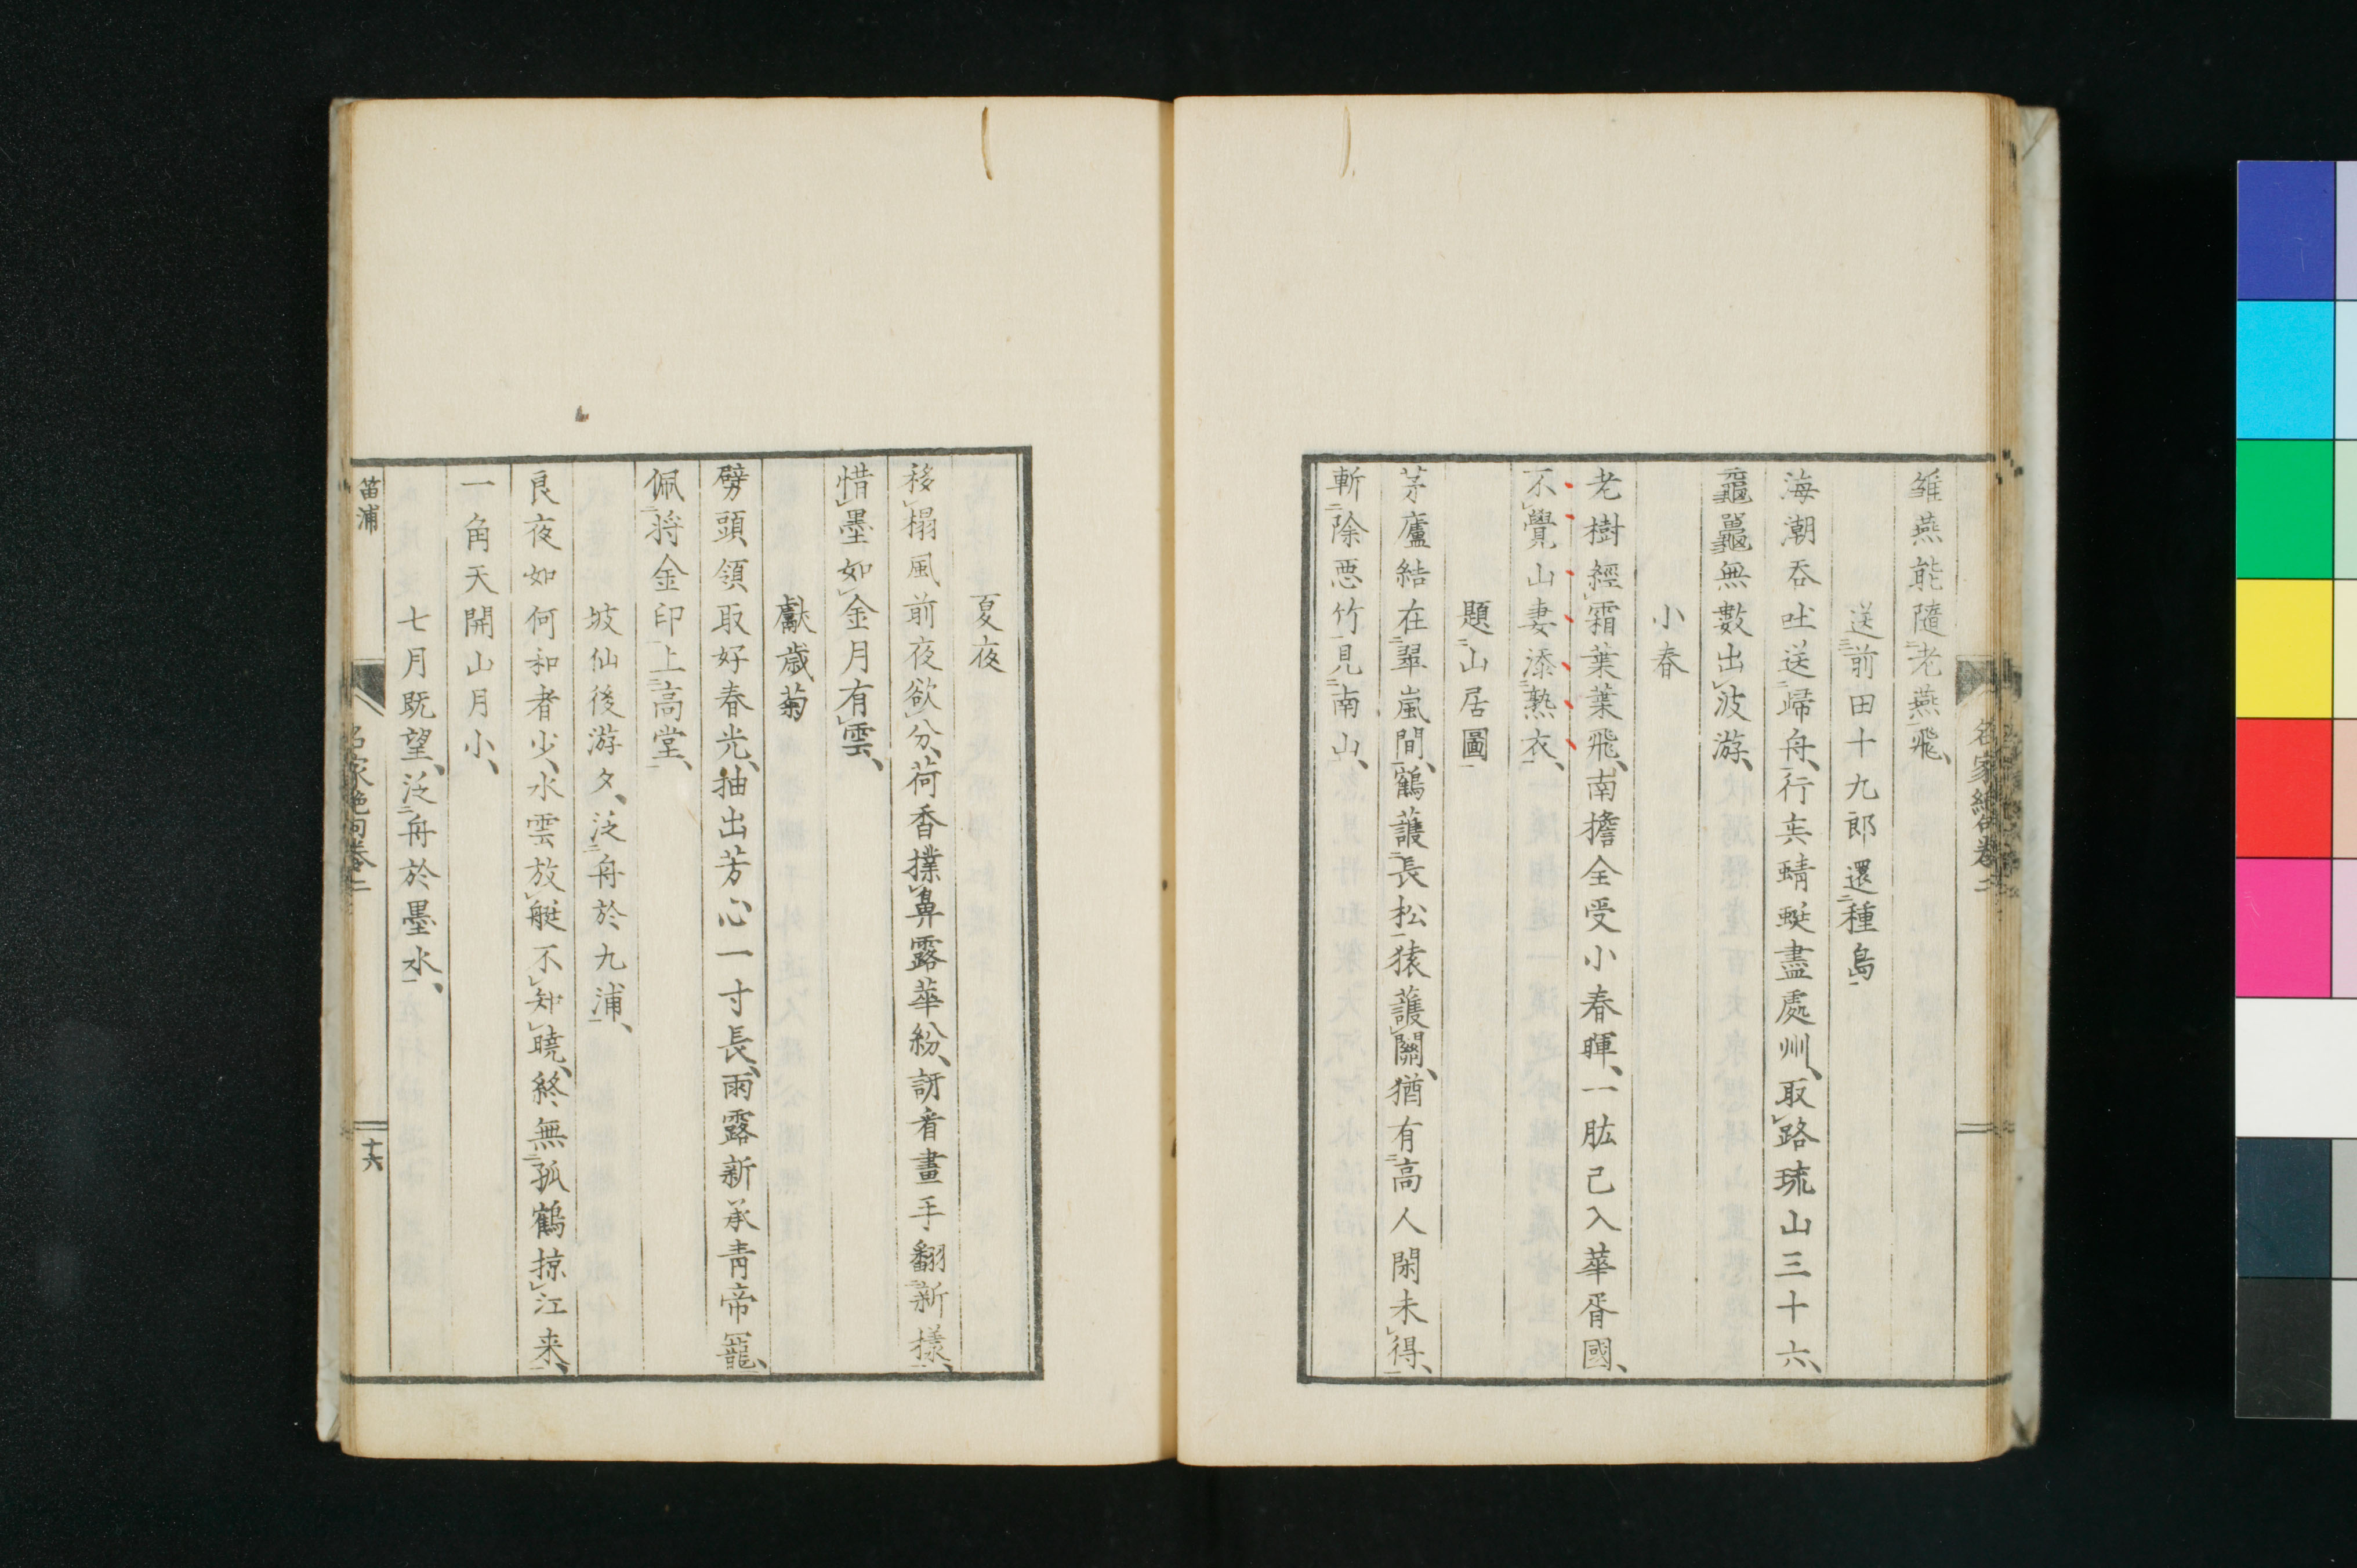 雛燕能隨老燕飛、
送前田十九郎還種島
海潮吞吐送歸舟、行去蜻蜓盡處州、取路琉山三十六、
黿鼉無數出波游、
小春
老樹經霜葉葉飛、南擔全受小春暉、一肱已入華胥國、
不覺山妻添熱衣、
題山居圖
茅廬結在翠嵐間、鶴護長松猿護關、猶有高人閑未得、
斬除惡竹見南山、
名家絕句卷二
夏夜
移榻風前夜欲分、荷香撲鼻露華紛、訝看畫手翻新樣、
惜墨如金月有雲、
獻歲菊
劈頭領取好春光、抽出芳心一寸長、雨露新承青帝寵、
佩將金印上高堂、
坡仙後游夕、泛舟於九浦、
良夜如何和者少、水雲放艇不知曉、終無孤鶴掠江来、
一角天開山月小、
七月既望、泛舟於墨水、
笛浦
名家絕句卷二
十六